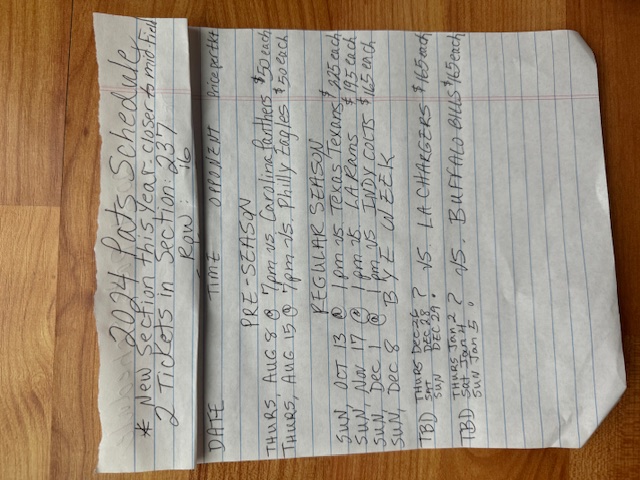 2024 Pats Schedule
* New Section this Year-closer to mid-field
2 Tickets in Section: 237
Row: 16
DATE TIME OPPONENT Price per tkt
PRE-SEASON
THURS, AUG 8 @ 7pm vs. Carolina Panthers $50 each
THURS, AUG 15 @ 7pm vs. Philly Eagles $50 each
REGULAR SEASON
SUN, OCT 13 @ 1pm vs. Texas Texans $225 each
SUN, NOV 17 @ 1pm vs. LA Rams $195 each
SUN, Dec 1 @ 1pm vs. INDY COLTS $165 each
SUN, Dec 8 BYE WEEK
TBD THURS DEC 26 ? VS. LA CHARGERS $165 each
SAT DEC 28
SUN DEC 29
TBD THURS Jan 2 ? VS. BUFFALO BILLS $165 each
Sat Jan 4
SUN Jan 5